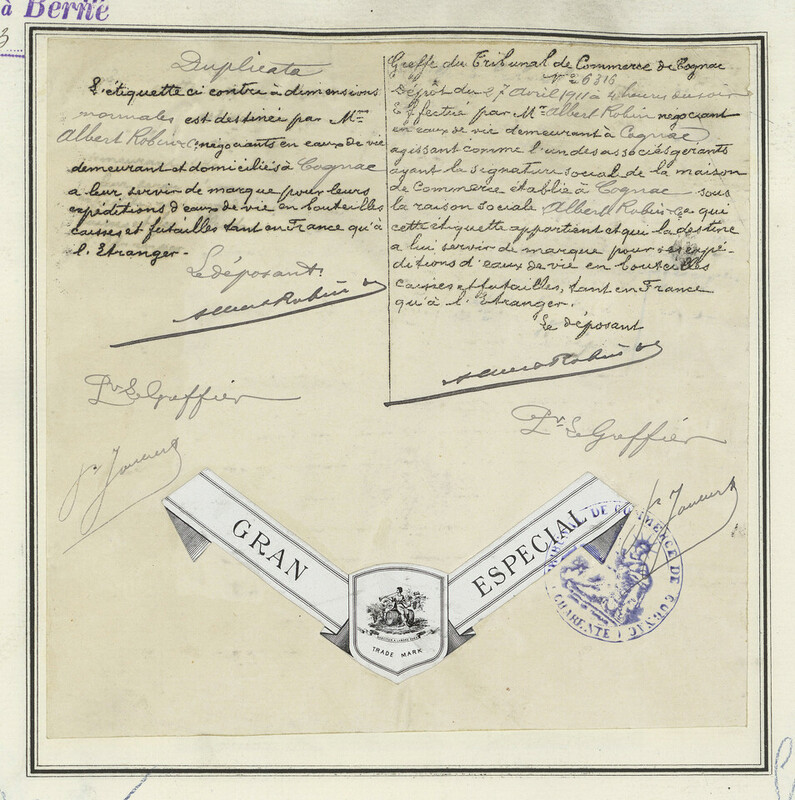 à Berne
3
Duplicata
L'étiquette ci contre à dimensions
normales est destinée par Mrs
Albert Robin & Co négociants en eaux de vie
demeurant et domiciliés à Cognac
a leur servir de marque pour leurs
expéditions d'eaux de vie en bouteilles
caisses et futailles tant en France qu'à
l'Etranger -
Le déposant
Albert Robin & Co
Pr Le Greffier
Greffe du Tribunal de Commerce de Cognac
No 6316
Dépôt du 7 Avril 1911 à 4 heures du soir
Effectué par Mr Albert Robin négociant
en eaux de vie demeurant à Cognac
agissant comme l'un des associés gérants
ayant la signature social de la maison
de Commerce établie à Cognac sous
la raison sociale Albert Robin & Co qui
cette étiquette appartient et qui la destine
a lui servir de marque pour ses expé-
ditions d'eaux de vie en bouteilles
caisses et futailles, tant en France
qu'à l'Etranger.
Le déposant
Albert Robin & Co
Pr Le Greffier
GRAN ESPECIAL
TRADE MARK
TRIBUNAL DE COMMERCE DE COGNAC
(CHARENTE)